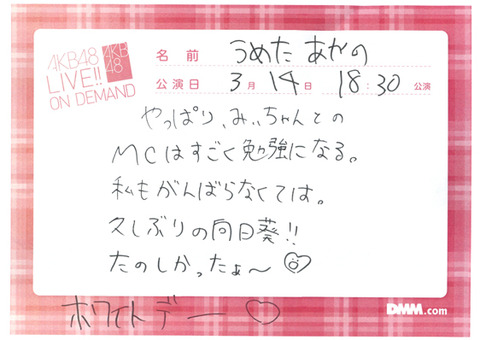 AKB48
LIVE!!
ON DEMAND
AKB
48
名 前 うめた あやの
公演日 3月14日 18:30 公演
やっぱり、みぃちゃんとの
MCはすごく勉強になる。
私もがんばらなくては。
久しぶりの向日葵!!
たのしかったぁ〜♡
ホワイトデー♡
DMM.com